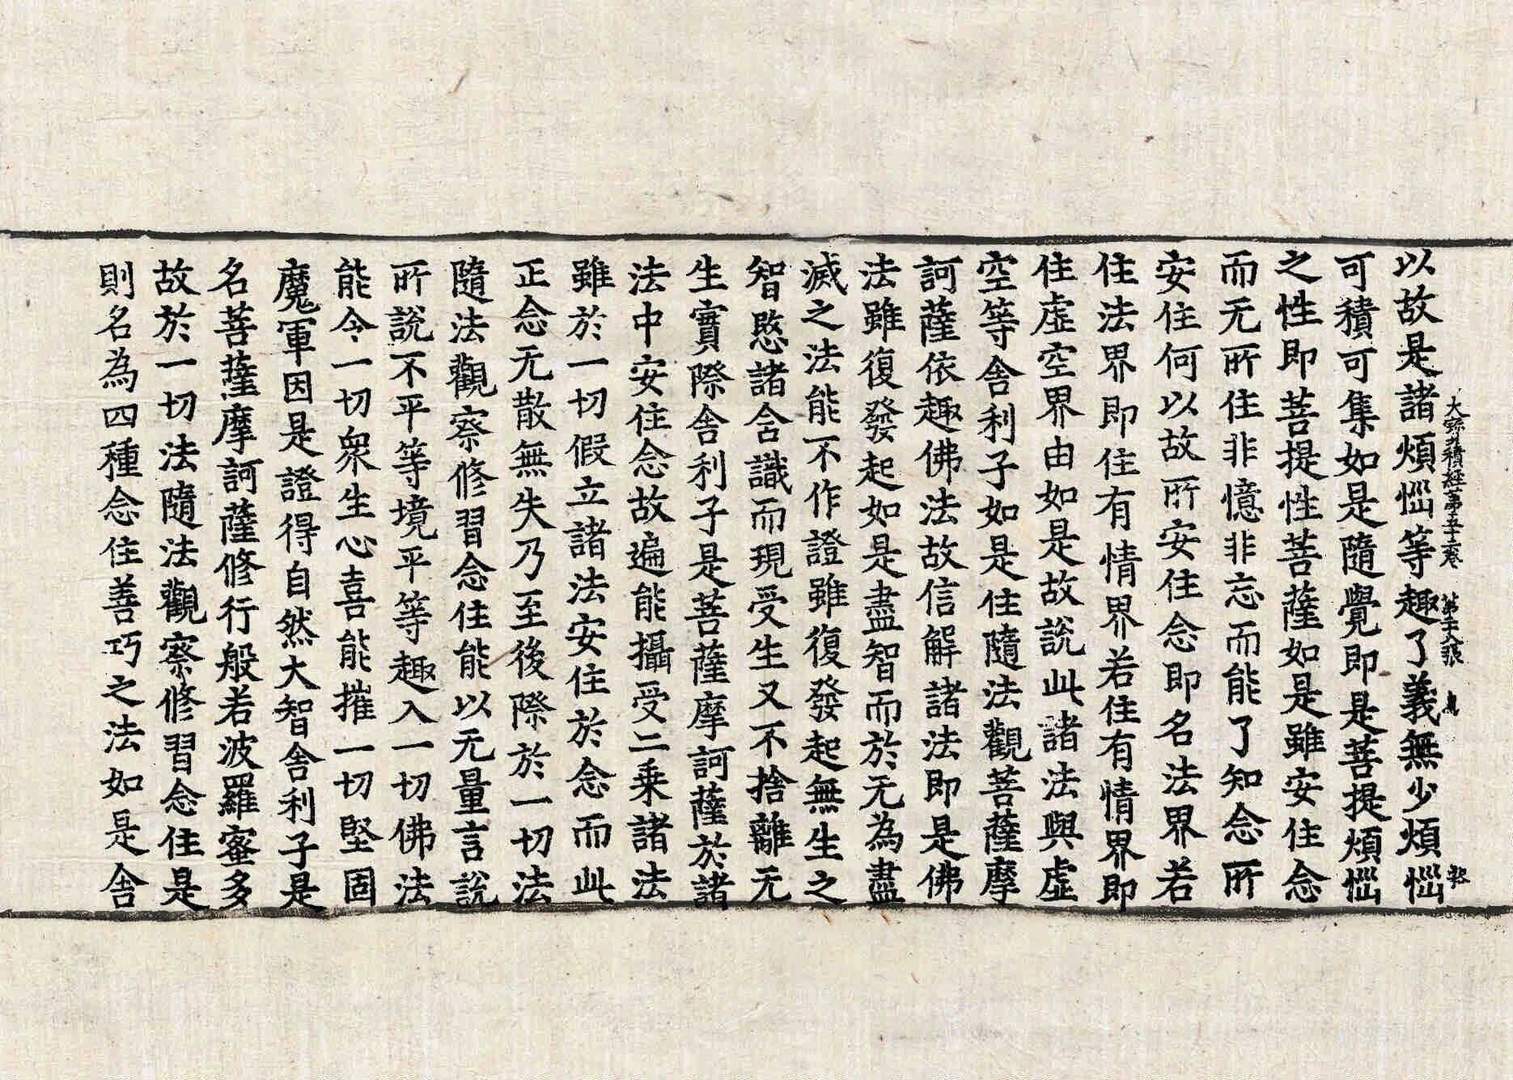 大寶積經第五十三卷 第十八張 鳥
以故是諸煩惱等趣了義無少煩惱
可積可集如是隨覺即是菩提煩惱
之性即菩提性菩薩如是雖安住念
而无所住非憶非忘而能了知念所
安住何以故所安住念即名法界若
住法界即住有情界若住有情界即
住虛空界由如是故說此諸法與虛
空等舍利子如是住隨法觀菩薩摩
訶薩依趣佛法故信解諸法即是佛
法雖復發起如是盡智而於无為盡
滅之法能不作證雖復發起無生之
智愍諸含識而現受生又不捨離无
生實際舍利子是菩薩摩訶薩於諸
法中安住念故遍能攝受二乘諸法
雖於一切假立諸法安住於念而此
正念无散無失乃至後際於一切法
隨法觀察修習念住能以无量言說
所說不平等境平等趣入一切佛法
能令一切衆生心喜能摧一切堅固
魔軍因是證得自然大智舍利子是
名菩薩摩訶薩修行般若波羅蜜多
故於一切法隨法觀察修習念住是
則名為四種念住善巧之法如是舍